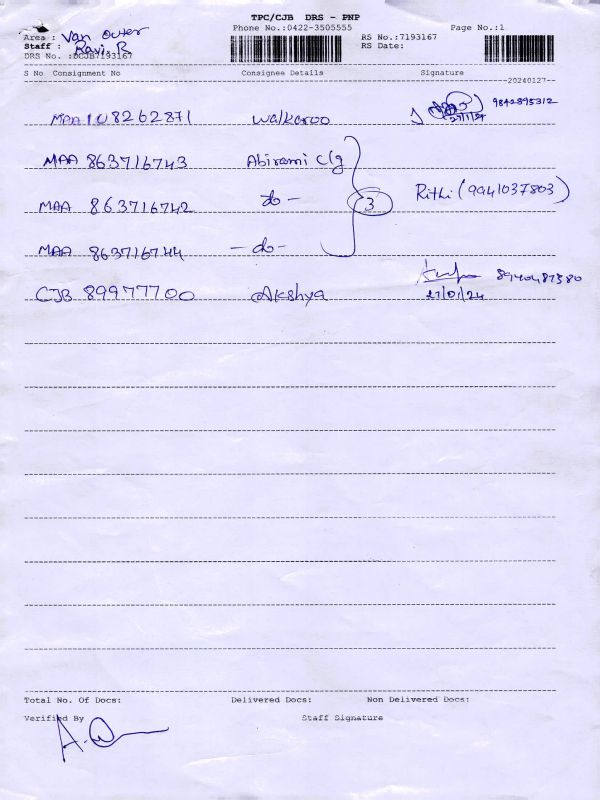 TPC/CJB DRS - PNP
Area : Van Outer
Phone No.:0422-3505555
Page No.:1
Staff : Ravi. R
RS No.:7193167
DRS No. :DCJB7193167
RS Date:
S No Consignment No Consignee Details Signature
20240127
MAA 108262871 Walkaroo 9842895312
27/1/24
MAA 863716743 Abirami c/g
MAA 863716742 do - 3 Rithi (9941037803)
MAA 863716744 - do -
CJB 89977700 Akshya 8940487380
27/01/24
Total No. Of Docs: Delivered Docs: Non Delivered Docs:
Verified By Staff Signature